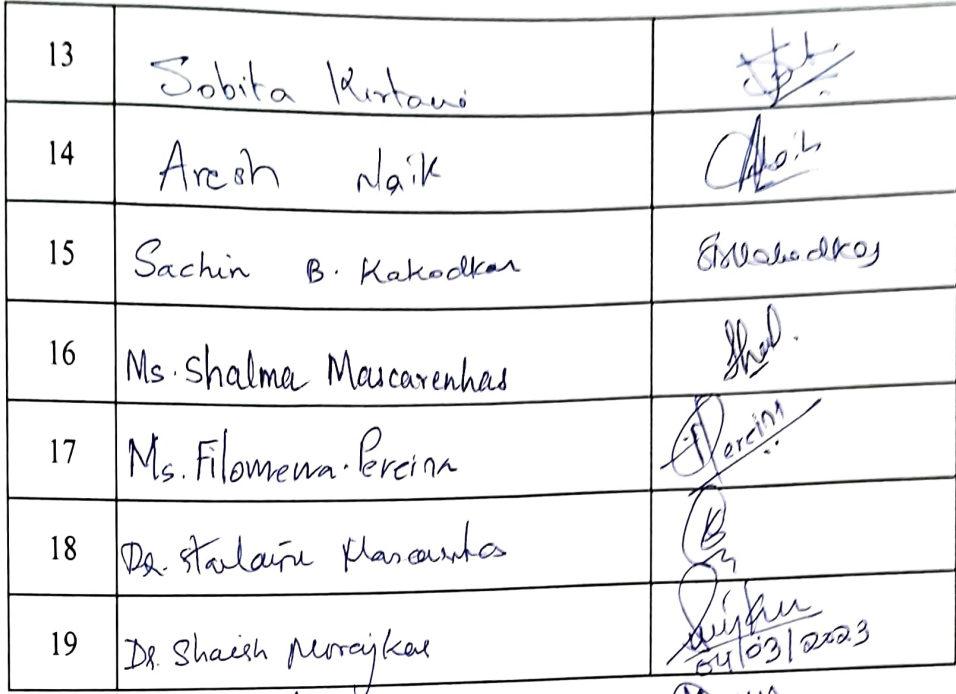 13 Sobita Kirtani
14 Aresh Naik Naik
15 Sachin B. Kakodkar SBKakodkar
16 Ms. Shalma Mascarenhas Shal.
17 Ms. Filomena Pereira Pereira
18 Dr.
19 Dr. Shaish Morajkar
04/03/2023